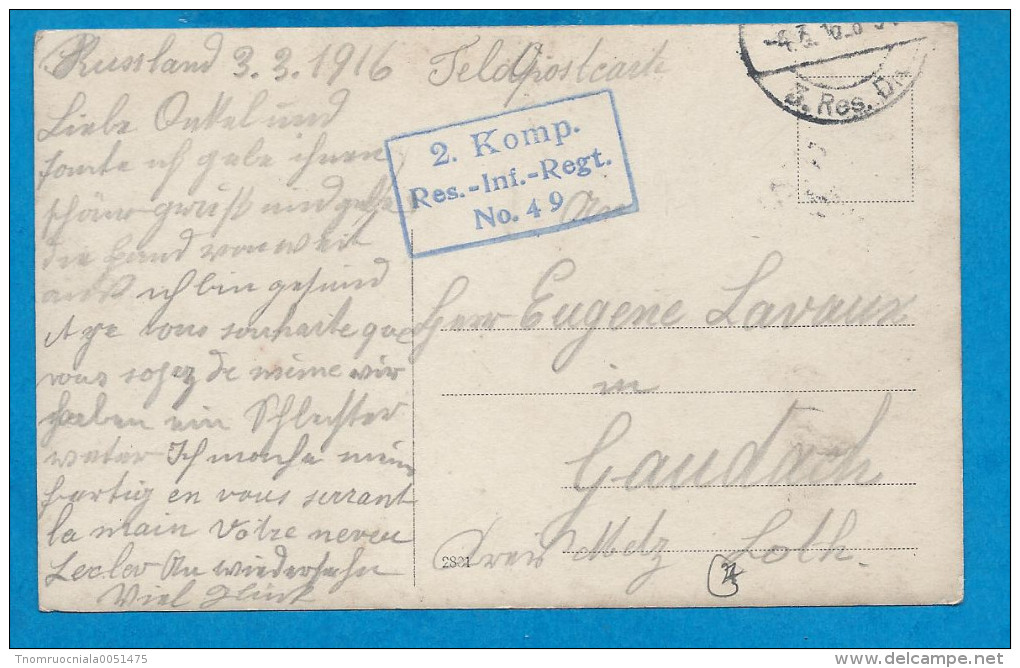 Russland 3.3.1916 Feldpostcarte
3. Res. Div
Liebe Onkel und
tante ich gebe ihnen
schöne grüß und
die Hand von weit
auß ich bin gesund
vous souhaite que
vous soyez de meme wir
haben ein Schlechter
weter Ich mache mein
fertig en vous serrant
la main Votre neveu
An wiedersehn
Viel Glück
2. Komp.
Res.-Inf.-Regt.
No. 49
An
Herr Eugene Lavaux
in
Gaudach
Kreis Metz Loth.
2881
Tnomruocniala0051475
delcampe.net